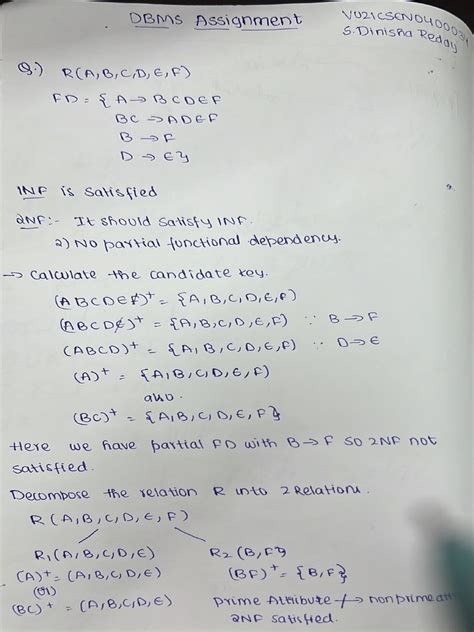 DBMS Assignment
S. Dinisha Reddy
Q.) R(A,B,C,D,E,F)
FD = { A → BCDEF
BC → ADEF
B → F
D → E }
1NF is satisfied
2NF:- It should satisfy 1NF.
2) NO partial functional dependency.
→ Calculate the candidate key.
(ABCDEF)+ = {A,B,C,D,E,F}
(ABCDE)+ = {A,B,C,D,E,F} ∵ B→F
(ABCD)+ = {A,B,C,D,E,F} ∵ D→E
(A)+ = {A,B,C,D,E,F}
also.
(BC)+ = {A,B,C,D,E,F}
Here we have partial FD with B→F so 2NF not
satisfied.
Decompose the relation R into 2 Relations.
R(A,B,C,D,E,F)
R1(A,B,C,D,E) R2(B,F}
(A)+ = (A,B,C,D,E) (BF)+ = {B,F}
(or)
(BC)+ = (A,B,C,D,E) prime Attribute ↛ nonprime
2NF satisfied.